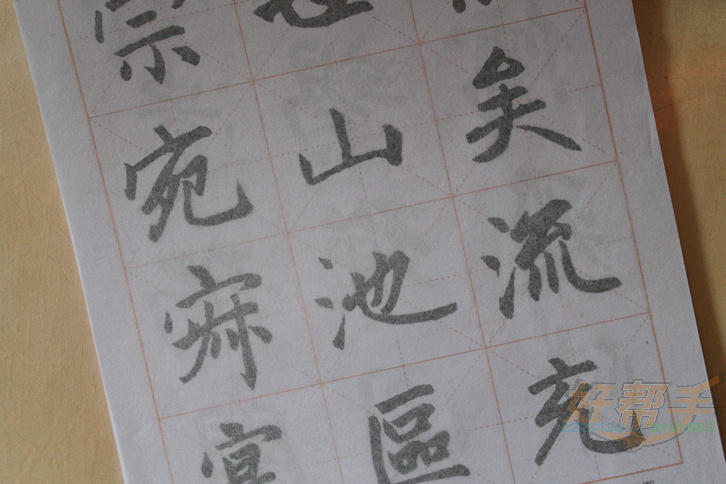 矣流充
山池區
宗宛寐
好帮手